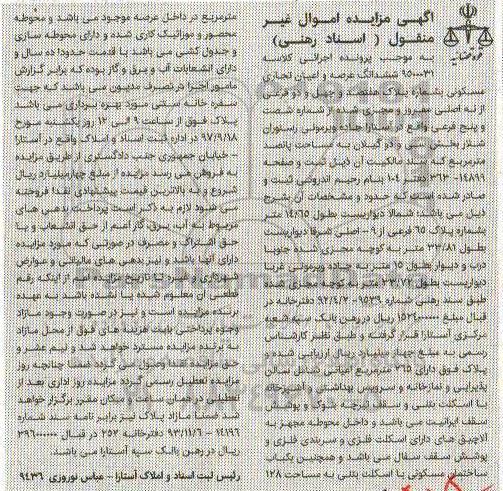 آگهی مزایده اموال غیر
منقول ( اسناد رهنی)
قوه قضائیه
به موجب پرونده اجرائی کلاسه
۹۵۰۰۰۳۱ ششدانگ عرصه و اعیان تجاری
مسکونی بشماره پلاک هفتصد و چهل و دو فرعی
از نه اصلی مفروز و مجزی شده از شماره شصت
و پنج فرعی واقع در آستارا جاده ویرمونی رستوران
شلار بخش سی و دو گیلان به مساحت پانصد
مترمربع که سند مالکیت آن ذیل ثبت و صفحه
۱۴۸۹۹- ۳۶۳ دفتر ۱۰۴ بنام رحیم اندروشی ثبت و
صادر شده است که حدود و مشخصات آن بشرح
ذیل می باشد: شمالا دیواریست بطول ۱۴/۶۵ متر
بشماره پلاک ۶۵ فرعی از ۹ – اصلی شرقا دیواریست
بطول ۳۳/۸۱ متر به کوچه مجزی شده جنوبا
درب و دیوار بطول ۱۵ متر به جاده ویرمونی غربا
دیواریست بطول ۳۳/۷۲ متر به کوچه مجزی شده
طبق سند رهنی شماره ۹۵۳۹- ۹۲/۴/۲ دفترخانه در
قبال مبلغ ۱۵۳۴۰۰۰۰۰۰ ریال در رهن بانک سپه شعبه
مرکزی آستارا قرار گرفته و طبق نظر کارشناس
رسمی به مبلغ چهار میلیارد ریال ارزیابی شده و
پلاک فوق دارای ۳۶۵ مترمربع اعیانی شامل سالن
پذیرایی و نمازخانه و سرویس بهداشتی و آشپزخانه
با اسکلت بتنی و سقف تیرچه بلوک و پوشش
سقف ایرانیت می باشد و داخل محوطه مجهز به
آلاچیق های دارای اسکلت فلزی و سربندی فلزی و
پوشش سقف سفال می باشد و همچنین یکباب
ساختمان مسکونی با اسکلت بتنی به مساحت ۱۲۸
مترمربع در داخل عرصه موجود می باشد و محوطه
محصور و موزائیک کاری شده و دارای محوطه سازی
و جدول کشی می باشد با قدمت حدودا ده سال و
دارای انشعابات آب و برق و گاز بوده که برابر گزارش
مامور اجرا در تصرف مدیون می باشد که جهت
سفره خانه سنتی مورد بهره برداری می باشد
پلاک فوق از ساعت ۹ الی ۱۲ روز یکشنبه مورخ
۹۷/۹/۱۸ در اداره ثبت اسناد و املاک واقع در آستارا
– خیابان جمهوری جنب دادگستری از طریق مزایده
به فروش می رسد مزایده از مبلغ چهارمیلیارد ریال
شروع و به بالاترین قیمت پیشنهادی نقدا فروخته
می شود لازم به ذکر است پرداخت بدهی های
مربوط به آب، برق، گاز اعم از حق انشعاب و یا
حق اشتراک و مصرف در صورتی که مورد مزایده
دارای آنها باشد و نیز بدهی های مالیاتی و عوارض
شهرداری و ... تا تاریخ مزایده اعم از اینکه رقم
قطعی آن معلوم شده یا نشده باشد به عهده
برنده مزایده است و نیز در صورت وجود مازاد
وجوه پرداختی بابت هزینه های فوق از محل مازاد
به برنده مزایده مسترد خواهد شد و نیم عشر و
حق مزایده نقدا وصول می گردد ضمنا چنانچه روز
مزایده تعطیل رسمی گردد مزایده روز اداری بعد از
تعطیلی در همان ساعت و مکان مقرر برگزار خواهد
شد ضمنا مازاد پلاک نیز برابر نامه سند شماره
۱۴۱۹۶ – ۹۳/۱۱/۶ دفترخانه ۲۵۲ در قبال ۳۹۶۰۰۰۰۰۰۰
ریال در رهن بانک سپه آستارا می باشد.
رئیس ثبت اسناد و املاک آستارا – عباس نوروزی ۹۴۳۶